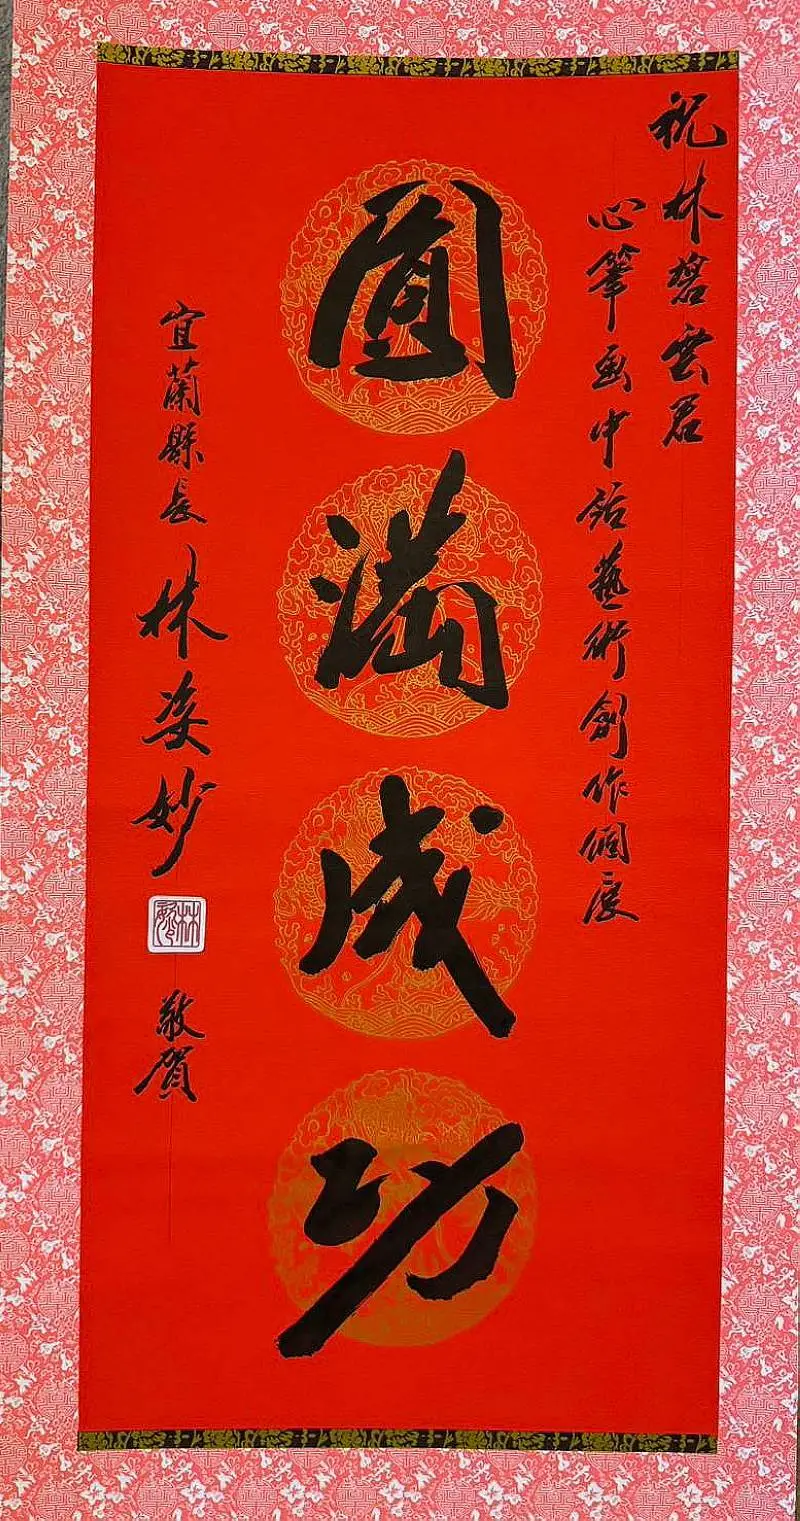 祝林碧雲君
心筆画中話藝術創作個展
圓滿成功
宜蘭縣長林姿妙
敬賀